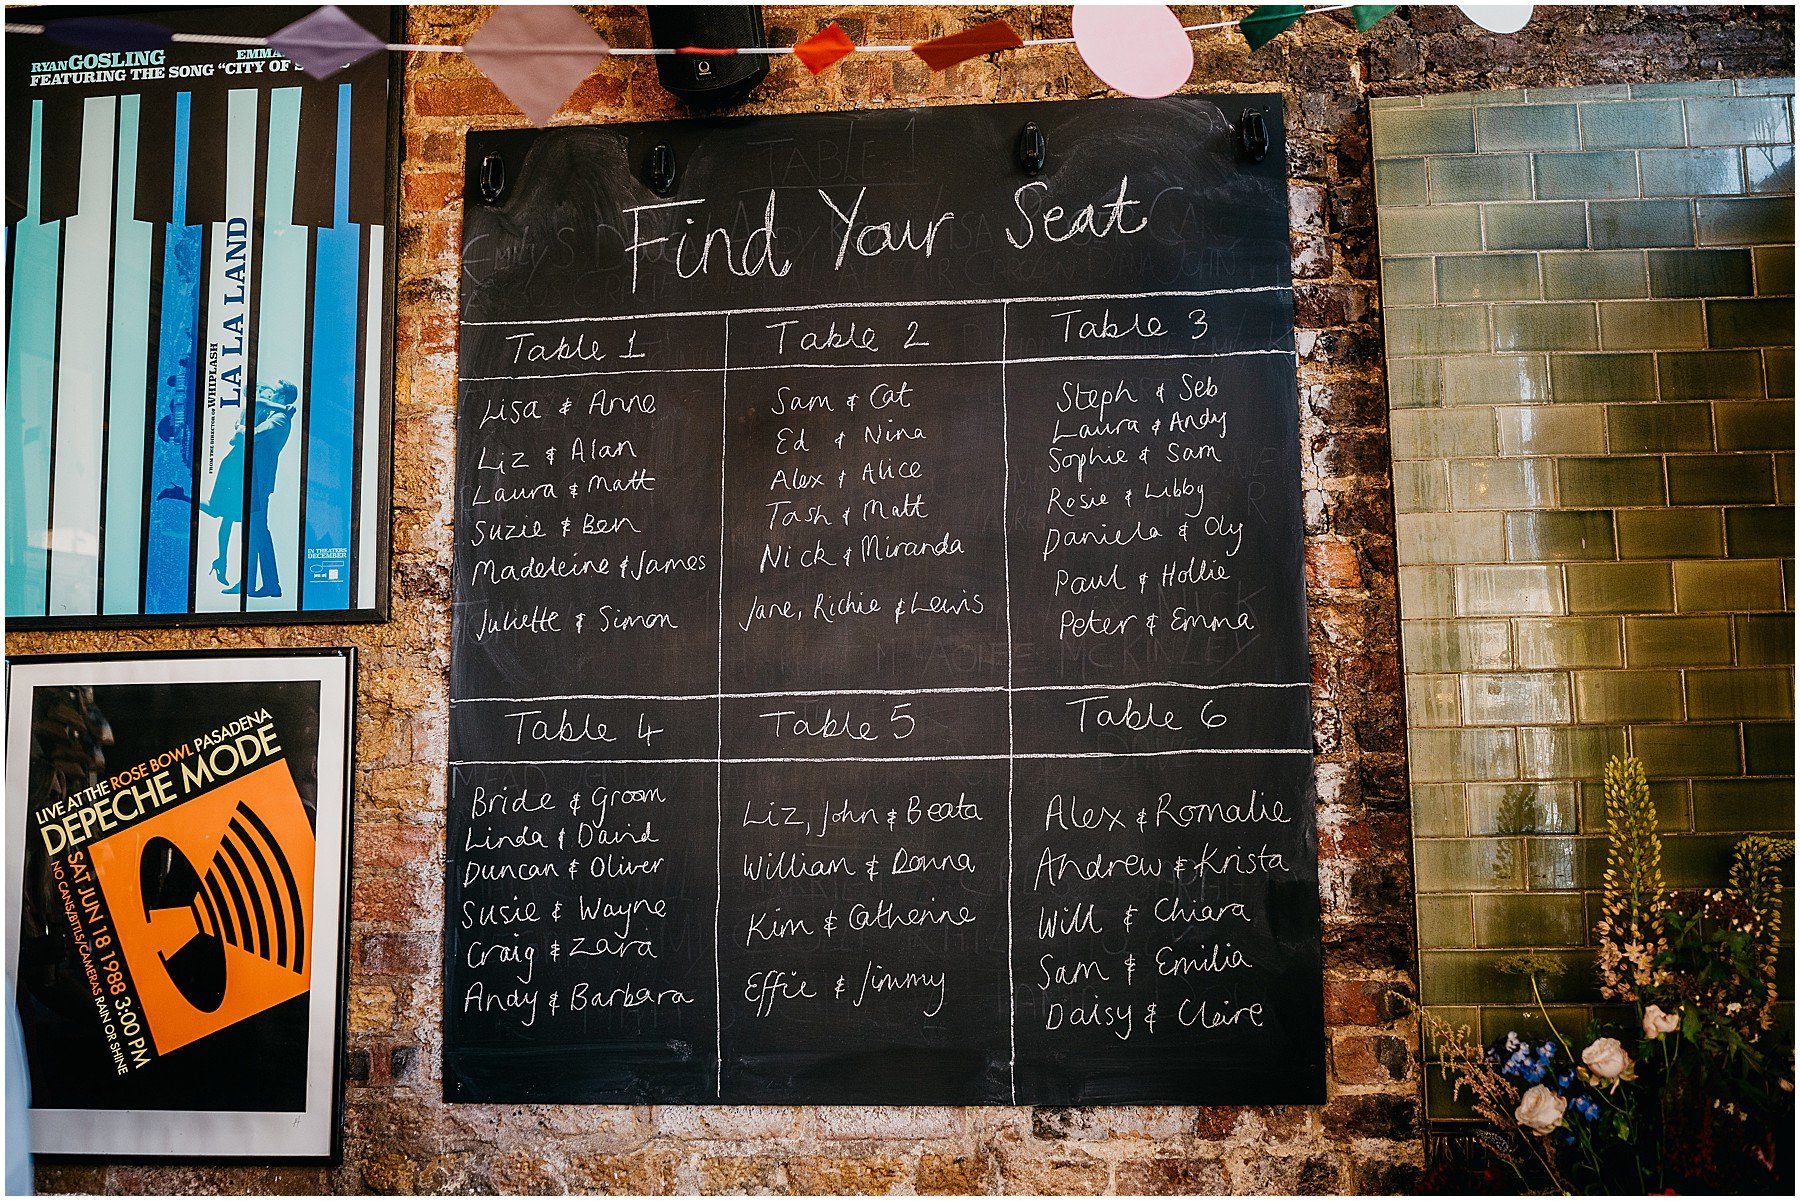 RYAN GOSLING
FEATURING THE SONG "CITY OF
LA LA LAND
FROM THE DIRECTOR OF WHIPLASH
IN THEATERS
DECEMBER
LIVE AT THE ROSE BOWL PASADENA
DEPECHE MODE
SAT JUN 18 1988 3:00 PM
NO CANS/BTTLS/CAMERAS RAIN OR SHINE
TABLE 1
Find Your Seat
Table 1
Lisa & Anne
Liz & Alan
Laura & Matt
Suzie & Ben
Madeleine & James
Juliette & Simon
Table 2
Sam & Cat
Ed & Nina
Alex & Alice
Tash & Matt
Nick & Miranda
Jane, Richie & Lewis
Table 3
Steph & Seb
Laura & Andy
Sophie & Sam
Rosie & Libby
Daniela & Oly
Paul & Hollie
Peter & Emma
NICK
MCKINLEY
Table 4
Bride & Groom
Linda & David
Duncan & Oliver
Susie & Wayne
Craig & Zara
Andy & Barbara
Table 5
Liz, John & Beata
William & Donna
Kim & Catherine
Effie & Jimmy
Table 6
Alex & Romalie
Andrew & Krista
Will & Chiara
Sam & Emilia
Daisy & Claire